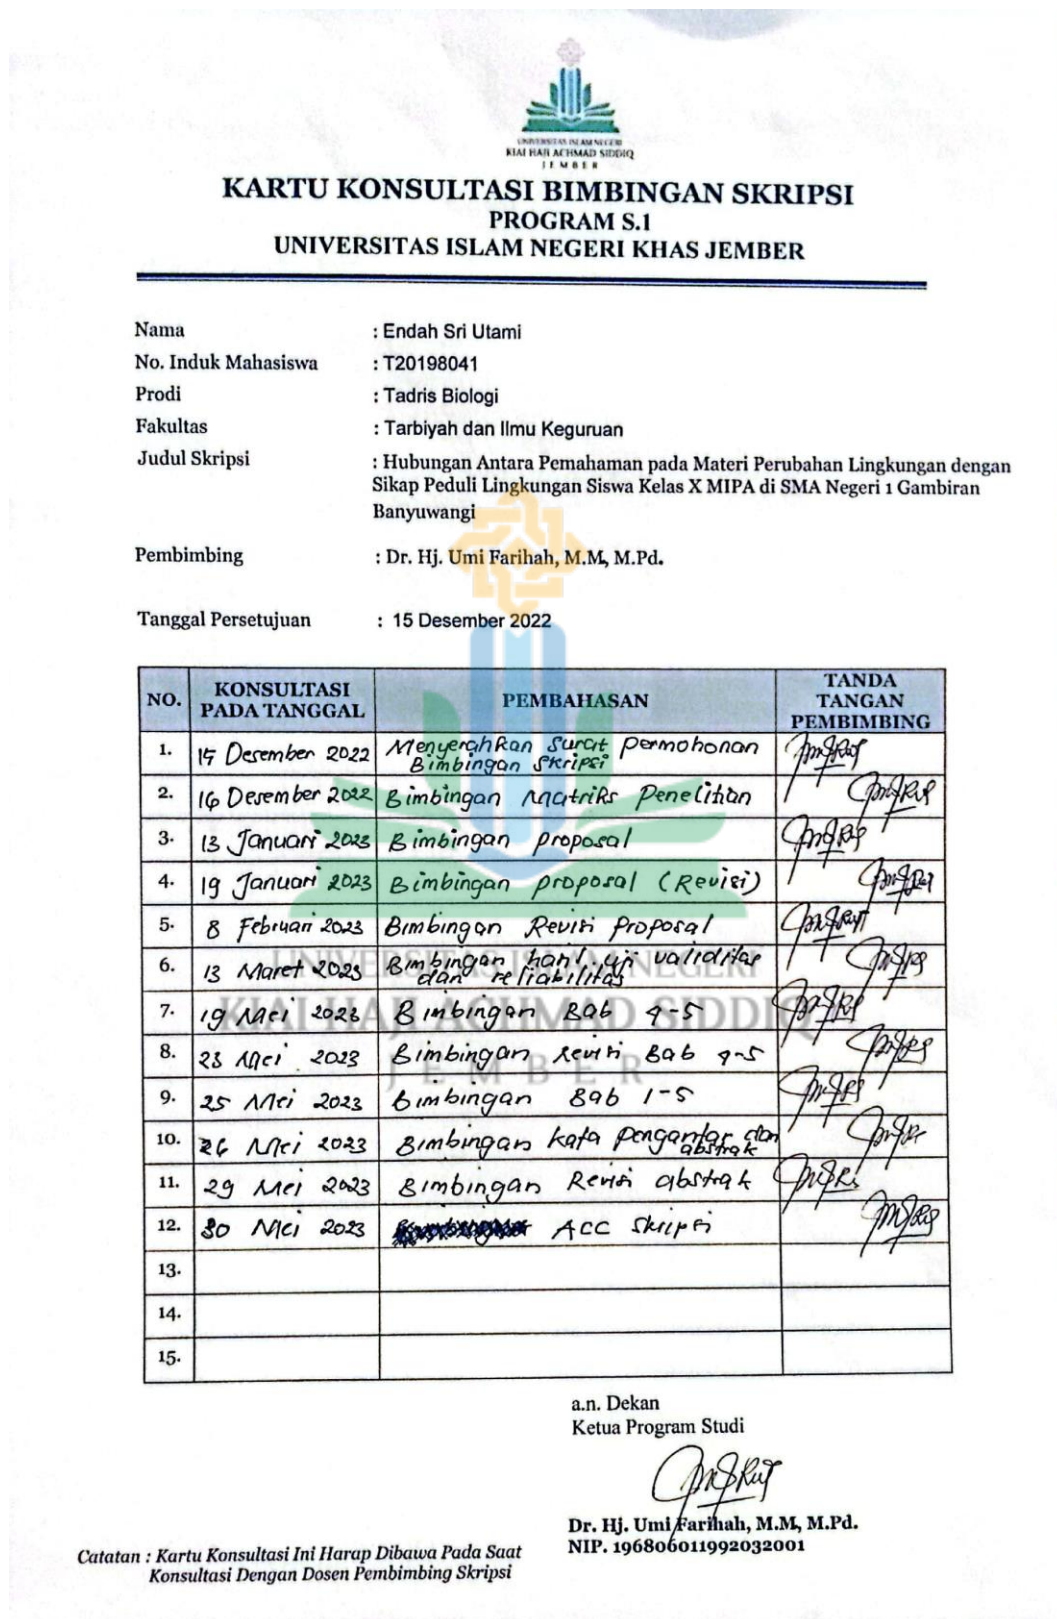 UNIVERSITAS ISLAM NEGERI
KIAI HAJI ACHMAD SIDDIQ
JEMBER
KARTU KONSULTASI BIMBINGAN SKRIPSI
PROGRAM S.1
UNIVERSITAS ISLAM NEGERI KHAS JEMBER
Nama : Endah Sri Utami
No. Induk Mahasiswa : T20198041
Prodi : Tadris Biologi
Fakultas : Tarbiyah dan Ilmu Keguruan
Judul Skripsi : Hubungan Antara Pemahaman pada Materi Perubahan Lingkungan dengan
Sikap Peduli Lingkungan Siswa Kelas X MIPA di SMA Negeri 1 Gambiran
Banyuwangi
Pembimbing : Dr. Hj. Umi Farihah, M.M, M.Pd.
Tanggal Persetujuan : 15 Desember 2022
NO. KONSULTASI PADA TANGGAL PEMBAHASAN TANDA TANGAN PEMBIMBING
1. 15 Desember 2022 Menyerahkan Surat permohonan
Bimbingan Skripsi
2. 16 Desember 2022 Bimbingan Matriks Penelitian
3. 13 Januari 2023 Bimbingan proposal
4. 19 Januari 2023 Bimbingan proposal (Revisi)
5. 8 Februari 2023 Bimbingan Revisi Proposal
6. 13 Maret 2023 Bimbingan hasil uji validitas
dan reliabilitas
7. 19 Mei 2023 Bimbingan Bab 4-5
8. 23 Mei 2023 Bimbingan Revisi Bab 4-5
9. 25 Mei 2023 Bimbingan Bab 1-5
10. 26 Mei 2023 Bimbingan kata pengantar dan
abstrak
11. 29 Mei 2023 Bimbingan Revisi abstrak
12. 30 Mei 2023 ACC Skripsi
13.
14.
15.
UNIVERSITAS ISLAM NEGERI
KIAI HAJI ACHMAD SIDDIQ
JEMBER
a.n. Dekan
Ketua Program Studi
Dr. Hj. Umi Farihah, M.M, M.Pd.
NIP. 196806011992032001
Catatan : Kartu Konsultasi Ini Harap Dibawa Pada Saat
Konsultasi Dengan Dosen Pembimbing Skripsi